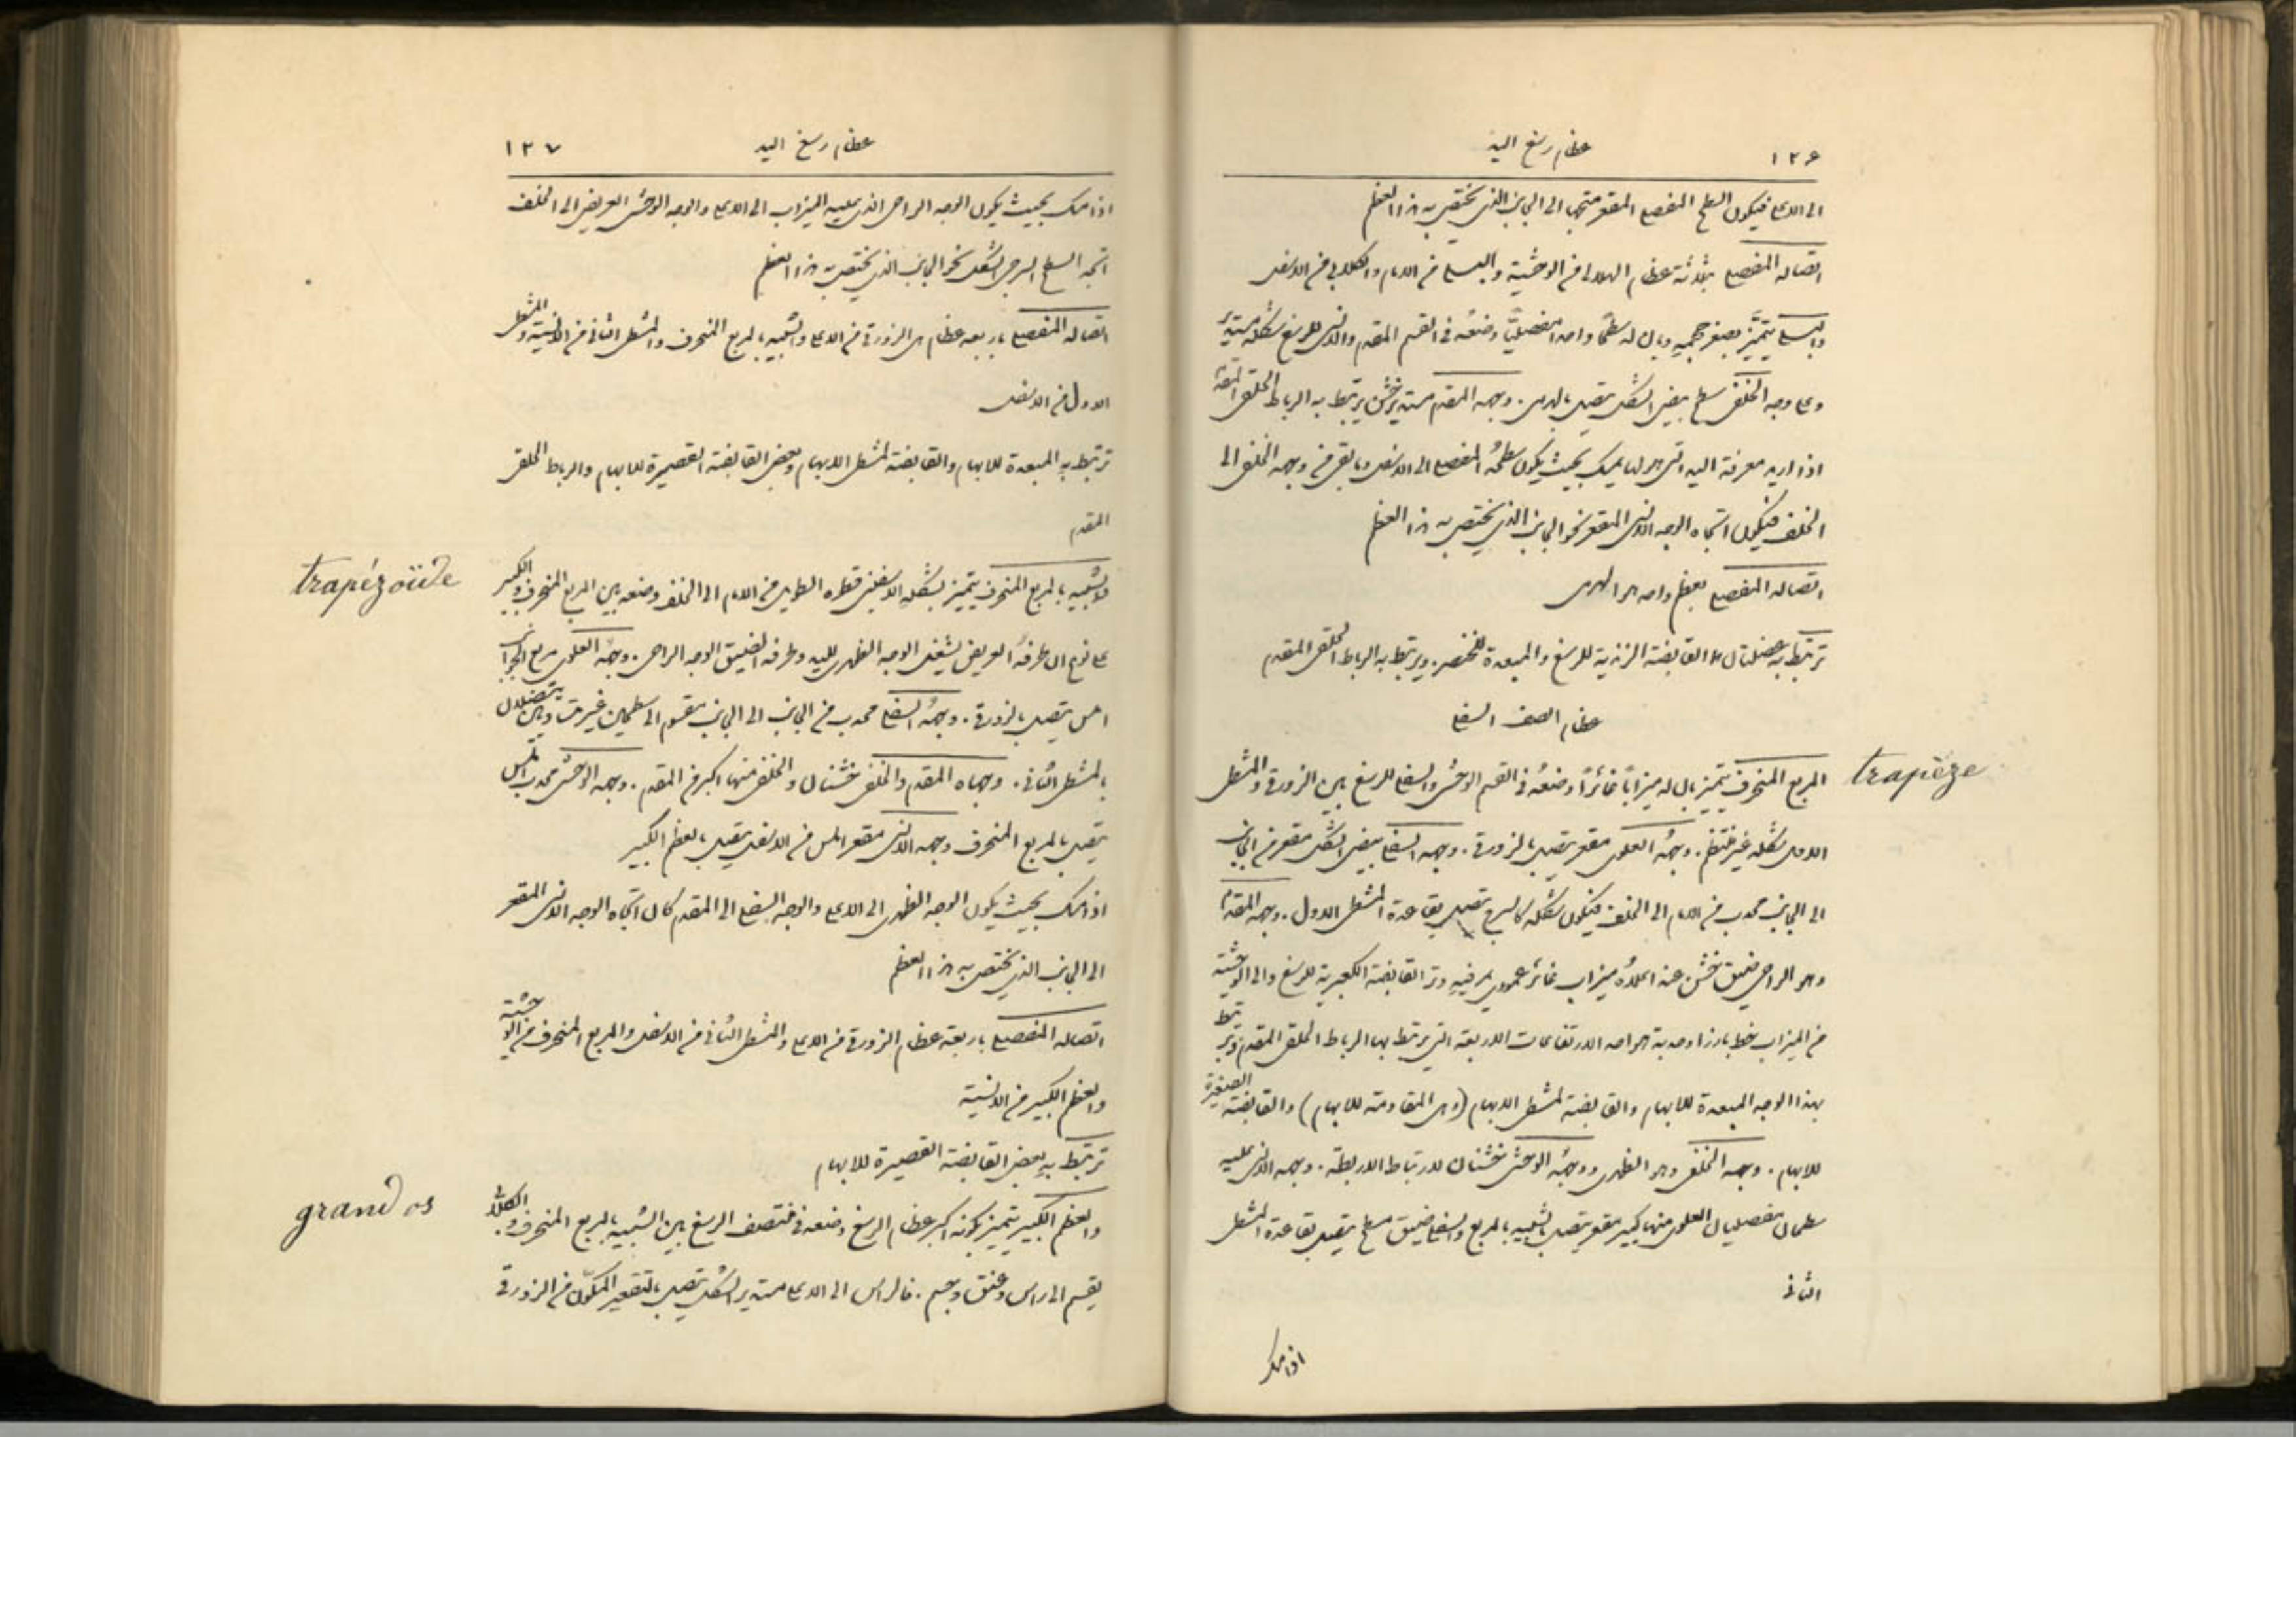 ١٢٦ عظام رسغ اليد
الى الاعلى فيكون السطح المفصلي المقعر متجها الى الجانب الذي يختص به هذا العظم
اتصاله المفصلي بثلاثة عظام الهلالي في الوحشية والبسلي في الامام والكلابي في الاسفل
والبسلي يتميز بصغر حجمه وبان له سطحًا واحدا مفصليًا وضعه في القسم المقدم والانسي للرسغ شكله مستدير
وعلى وجه الخلفي سطح بيضي الشكل يتصل بالهرمي. وجهه المقدم مستدير خشن يرتبط به الرباط الحلقي المقدم
اذا اريد معرفة اليد التي هو لها يمسك بحيث يكون سطحه المفصلي الى الاسفل وما بقي من وجهه الخلفي الى
الخلف فيكون اتجاه الوجه الانسي المقعر نحو الجانب الذي يختص به هذا العظم
اتصاله المفصلي بعظم واحد هو الهرمي
ترتبط به عضلتان ها القابضة الزندية للرسغ والمبعدة للخنصر. ويرتبط به الرباط الحلقي المقدم
عظام الصف السفلي
trapèze
المربع المنحرف يتميز بان له ميزابًا غائرًا وضعه في القسم الوحشي والسفلي للرسغ بين الزورقي والمشطي
الاول شكله غير منتظم. وجهه العلوي مقعر يتصل بالزورقي. وجهه السفلي بيضي الشكل مقعر من الجانب
الى الجانب محدب من الامام الى الخلف فيكون شكله كالسرج يتصل بقاعدة المشطي الاول. وجهه المقدم
وهو الراحي ضيق خشن عند اعلاه ميزاب غائر عمودي يمر فيه وتر القابضة الكعبرية للرسغ والى الوحشية
من الميزاب خط بارز او حدبة هو احد الارتفاعات الاربعة التي يرتبط بها الرباط الحلقي المقدم ويرتبط
بهذا الوجه المبعدة للابهام والقابضة لمشطي الابهام (وهي المقاومة للابهام) والقابضة الصغيرة
للابهام. وجهه الخلفي وهو الظهري ووجهه الوحشي خشنان لارتباط الاربطة. وجهه الانسي عليه
سطحان مفصليان العلوي منهما كبير مقعر يتصل بالشبيه بالمربع والسفلي ضيق مسطح يتصل بقاعدة المشطي
الثاني
اذا مسك
١٢٧ عظام رسغ اليد
اذا مسك بحيث يكون الوجه الراحي الذي عليه الميزاب الى الاعلى والوجه الوحشي العريض الى الخلف
اتجه السطح السرجي الشكل نحو الجانب الذي يختص به هذا العظم
اتصاله المفصلي باربعة عظام هي الزورقي من الاعلى والشبيه بالمربع المنحرف والمشطي الثاني من الانسية والمشطي
الاول من الاسفل
ترتبط به المبعدة للابهام والقابضة لمشطي الابهام وبعض القابضة القصيرة للابهام والرباط الحلقي
المقدم
trapézoïde
والشبيه بالمربع المنحرف يتميز بشكله الاسفيني قطره الطويل من الامام الى الخلف وضعه بين المربع المنحرف والكبير
على نوع ان طرفه العريض يشغل الوجه الظهري لليد وطرفه الضيق الوجه الراحي. وجهه العلوي مربع الجوانب
املس يتصل بالزورقي. وجهه السفلي محدب من الجانب الى الجانب مقسوم الى سطحين غير متساويين يتصلان
بالمشطي الثاني. وجهاه المقدم والخلفي خشنان والخلفي منهما اكبر من المقدم. وجهه الوحشي محدب املس
يتصل بالمربع المنحرف وجهه الانسي مقعر املس من الاسفل يتصل بالعظم الكبير
اذا مسك بحيث يكون الوجه الظهري الى الاعلى والوجه السفلي الى المقدم كان اتجاه الوجه الانسي المقعر
الى الجانب الذي يختص به هذا العظم
اتصاله المفصلي باربعة عظام الزورقي من الاعلى والمشطي الثاني من الاسفل والمربع المنحرف من الوحشية
والعظم الكبير من الانسية
ترتبط به بعض القابضة القصيرة للابهام
grand os
والعظم الكبير يتميز بكونه اكبر عظام الرسغ وضعه في منتصف الرسغ بين الشبيه بالمربع المنحرف والكلابي
يقسم الى راس وعنق وجسم. فالراس الى الاعلى مستدير الشكل يتصل بالتقعير المكوّن من الزورقي